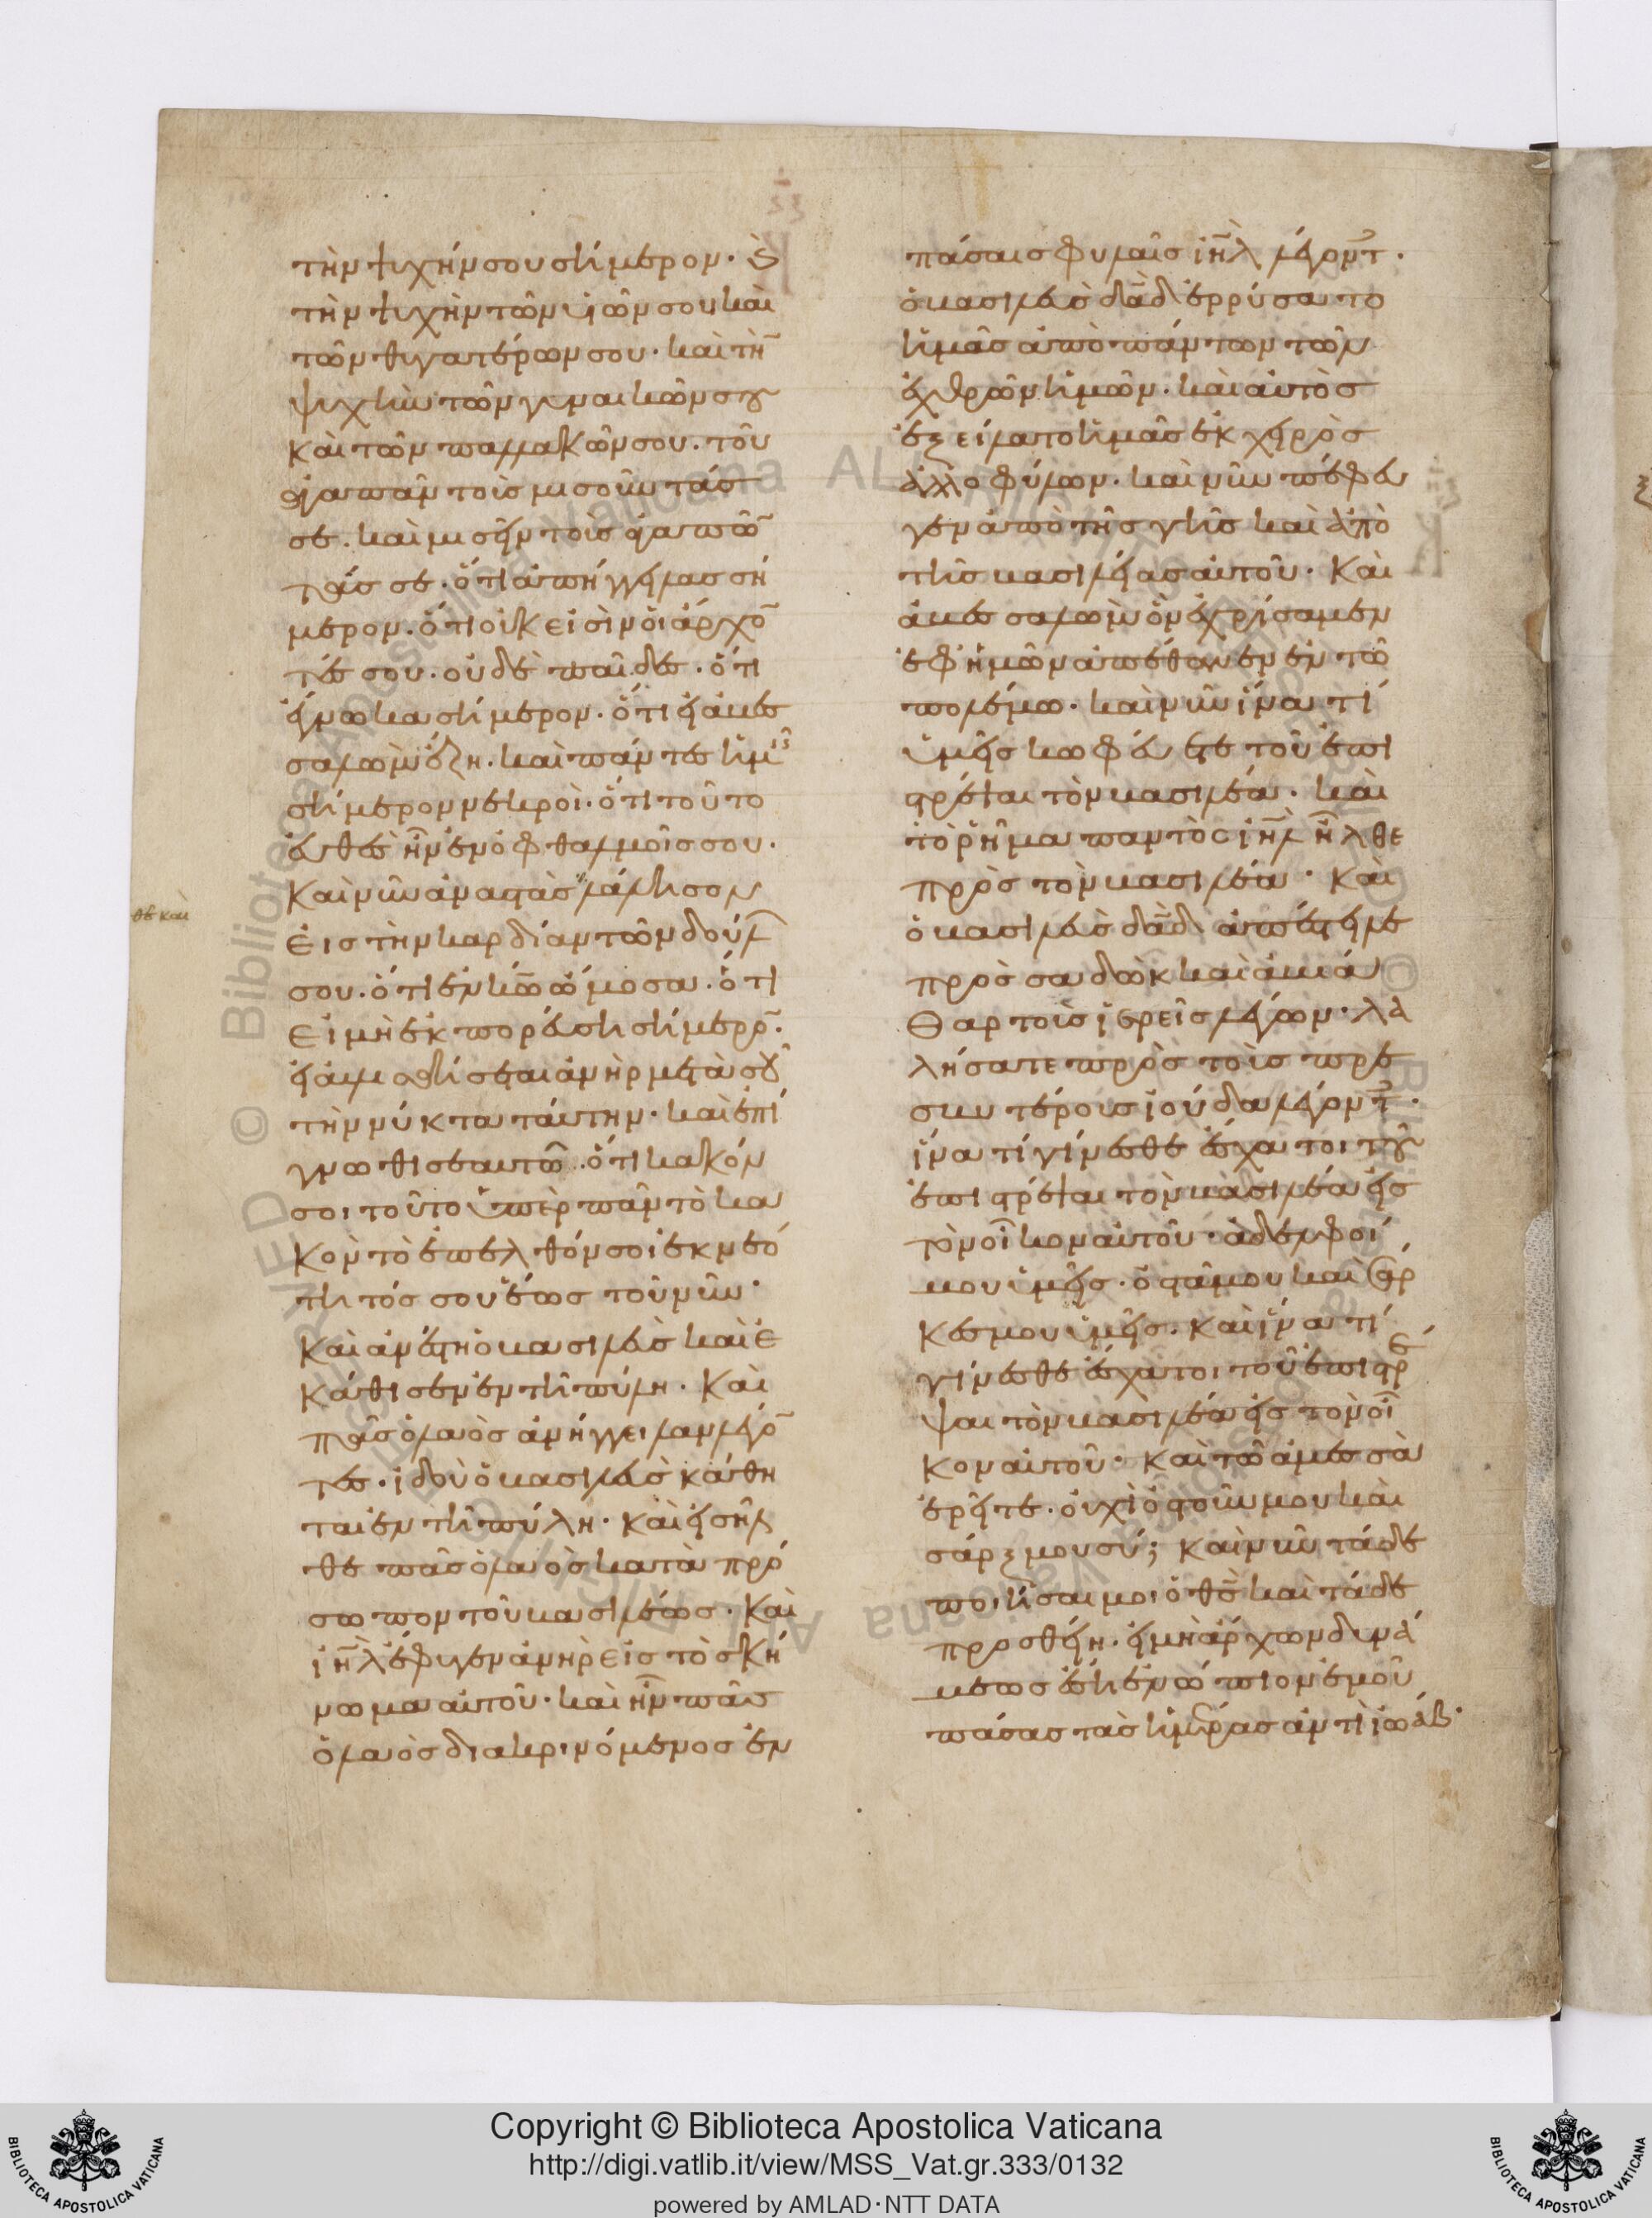 τὴν ψυχήν σου σήμερον· ϗ
τὴν ψυχὴν τῶν υἱῶν σου καὶ
τῶν θυγατέρων σου· καὶ τὴ̄
ψυχὴν τῶν γυναικῶν σου
καὶ τῶν παλλακῶν σου. τοῦ
ἀγαπᾶν τοὺς μισοῦντάς
σε. καὶ μισεῖν τοὺς ἀγαπῶ̄
τάς σε. ὅτι ἀπήγγειλας σή
μερον. ὅτι οὐκ εἰσὶν οἱ ἄρχο̄
τές σου. οὐδὲ παῖδες. ὅτι
ἔγνωκα σήμερον. ὅτι εἰ ἀβεσ
σαλὼμ ἔζη. καὶ πάντες ἡμεῖς
σήμερον νεκροὶ. ὅτι τοῦτο
εὐθὲς ἦν ἐν ὀφθαλμοῖς σου.
Καὶ νῦν ἀναστὰς λάλησον
θε και
εἰς τὴν καρδίαν τῶν δούλ
σου. ὅτι ἐν κω̄ ὤμοσα. ὅτι
εἰ μὴ ἐκπορεύση σήμερο̄.
εἰ αὐλισθήσεται ἀνὴρ μετὰ σοῦ
τὴν νύκτα ταύτην. καὶ ἐπί
γνωθι σεαυτῶ. ὅτι κακόν
σοι τοῦτο ὑπὲρ πᾶν τὸ κα
κὸν τὸ ἐπελθόν σοι ἐκ νεό
τητός σου ἕως τοῦ νῦν·
Καὶ ἀνέστη ὁ βασιλεὺς καὶ ἐ
κάθισεν ἐν τῆ πύλη. Καὶ
πᾶς ὁ λαὸς ἀνήγγειλαν λέγο̄
τες. ἰδοὺ ὁ βασιλεὺς κάθη
ται ἐν τῆ πύλη. καὶ εἰσῆλ
θε πᾶς ὁ λαὸς κατὰ πρό
σωπον τοῦ βασιλέως. Καὶ
ιη̄λ ἔφυγεν ἀνὴρ εἰς τὸ σκή
νωμα αὐτοῦ. καὶ ἦν πᾶς
ὁ λαὸς διακρινόμενος ἐν
πάσαις φυλαῖς ιη̄λ λέγοντ̄.
ὁ βασιλεὺς δᾱδ ἐρρύσατο
ἡμᾶς ἀπὸ πάντων τῶν
ἐχθρῶν ἡμῶν. καὶ αὐτὸς
ἐξείλατο ἡμᾶς ἐκ χειρὸς
ἀλλοφύλων. καὶ νῦν πέφευ
γεν ἀπὸ τῆς γῆς καὶ ἀπὸ
τῆς βασιλείας αὐτοῦ. Καὶ
ἀβεσσαλὼμ ὃν ἐχρίσαμεν
ἐφ ἡμῶν ἀπέθανεν ἐν τῶ
πολέμω. καὶ νῦν ἵνα τί
ὑμεῖς κωφεύετε τοῦ ἐπι
στρέψαι τὸν βασιλέα. καὶ
τὸ ῥῆμα παντὸς ιη̄λ ἦλθε
πρὸς τὸν βασιλέα. Καὶ
ὁ βασιλεὺς δᾱδ ἀπέστειλε
πρὸς σαδὼκ καὶ ἀβιά
θαρ τοὺς ἱερεῖς λέγων. λα
λήσατε πρὸς τοὺς πρε
σβυτέροις ἰούδα λέγοντ̄.
ἵνα τί γίνεσθε ἔσχατοι τοῦ
ἐπιστρέψαι τὸν βασιλέα εἰς
τὸν οἶκον αὐτοῦ. ἀδελφοί
μου ὑμεῖς. ὀστᾶ μου καὶ σάρ
κες μου ὑμεῖς. καὶ ἵνα τί
γίνεσθε ἔσχατοι τοῦ ἐπιστρέ
ψαι τὸν βασιλέα εἰς τὸν οἶ
κον αὐτοῦ. Καὶ τῶ ἀμεσσὰ
ἐρεῖτε. οὐχὶ ὀστοῦν μου καὶ
σάρξ μου σύ; καὶ νῦν τάδε
ποιήσαι μοι ὁ θς̄ καὶ τάδε
προσθείη. εἰ μὴ ἄρχων δυνά
μεως ἔση ἐνώπιον ἐμοῦ
πάσας τὰς ἡμέρας ἀντὶ ἰωάβ.
Copyright © Biblioteca Apostolica Vaticana
http://digi.vatlib.it/view/MSS_Vat.gr.333/0132
powered by AMLAD·NTT DATA